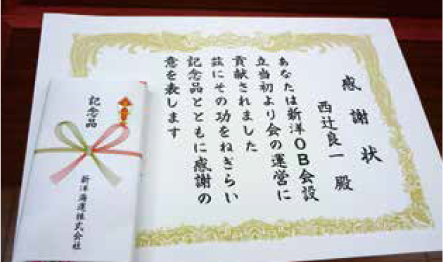 感謝状
西辻良一 殿
あなたは新洋OB会設
立当初より会の運営に
貢献されました
茲にその功をねぎらい
記念品とともに感謝の
意を表します
記念品
新洋海運株式会社